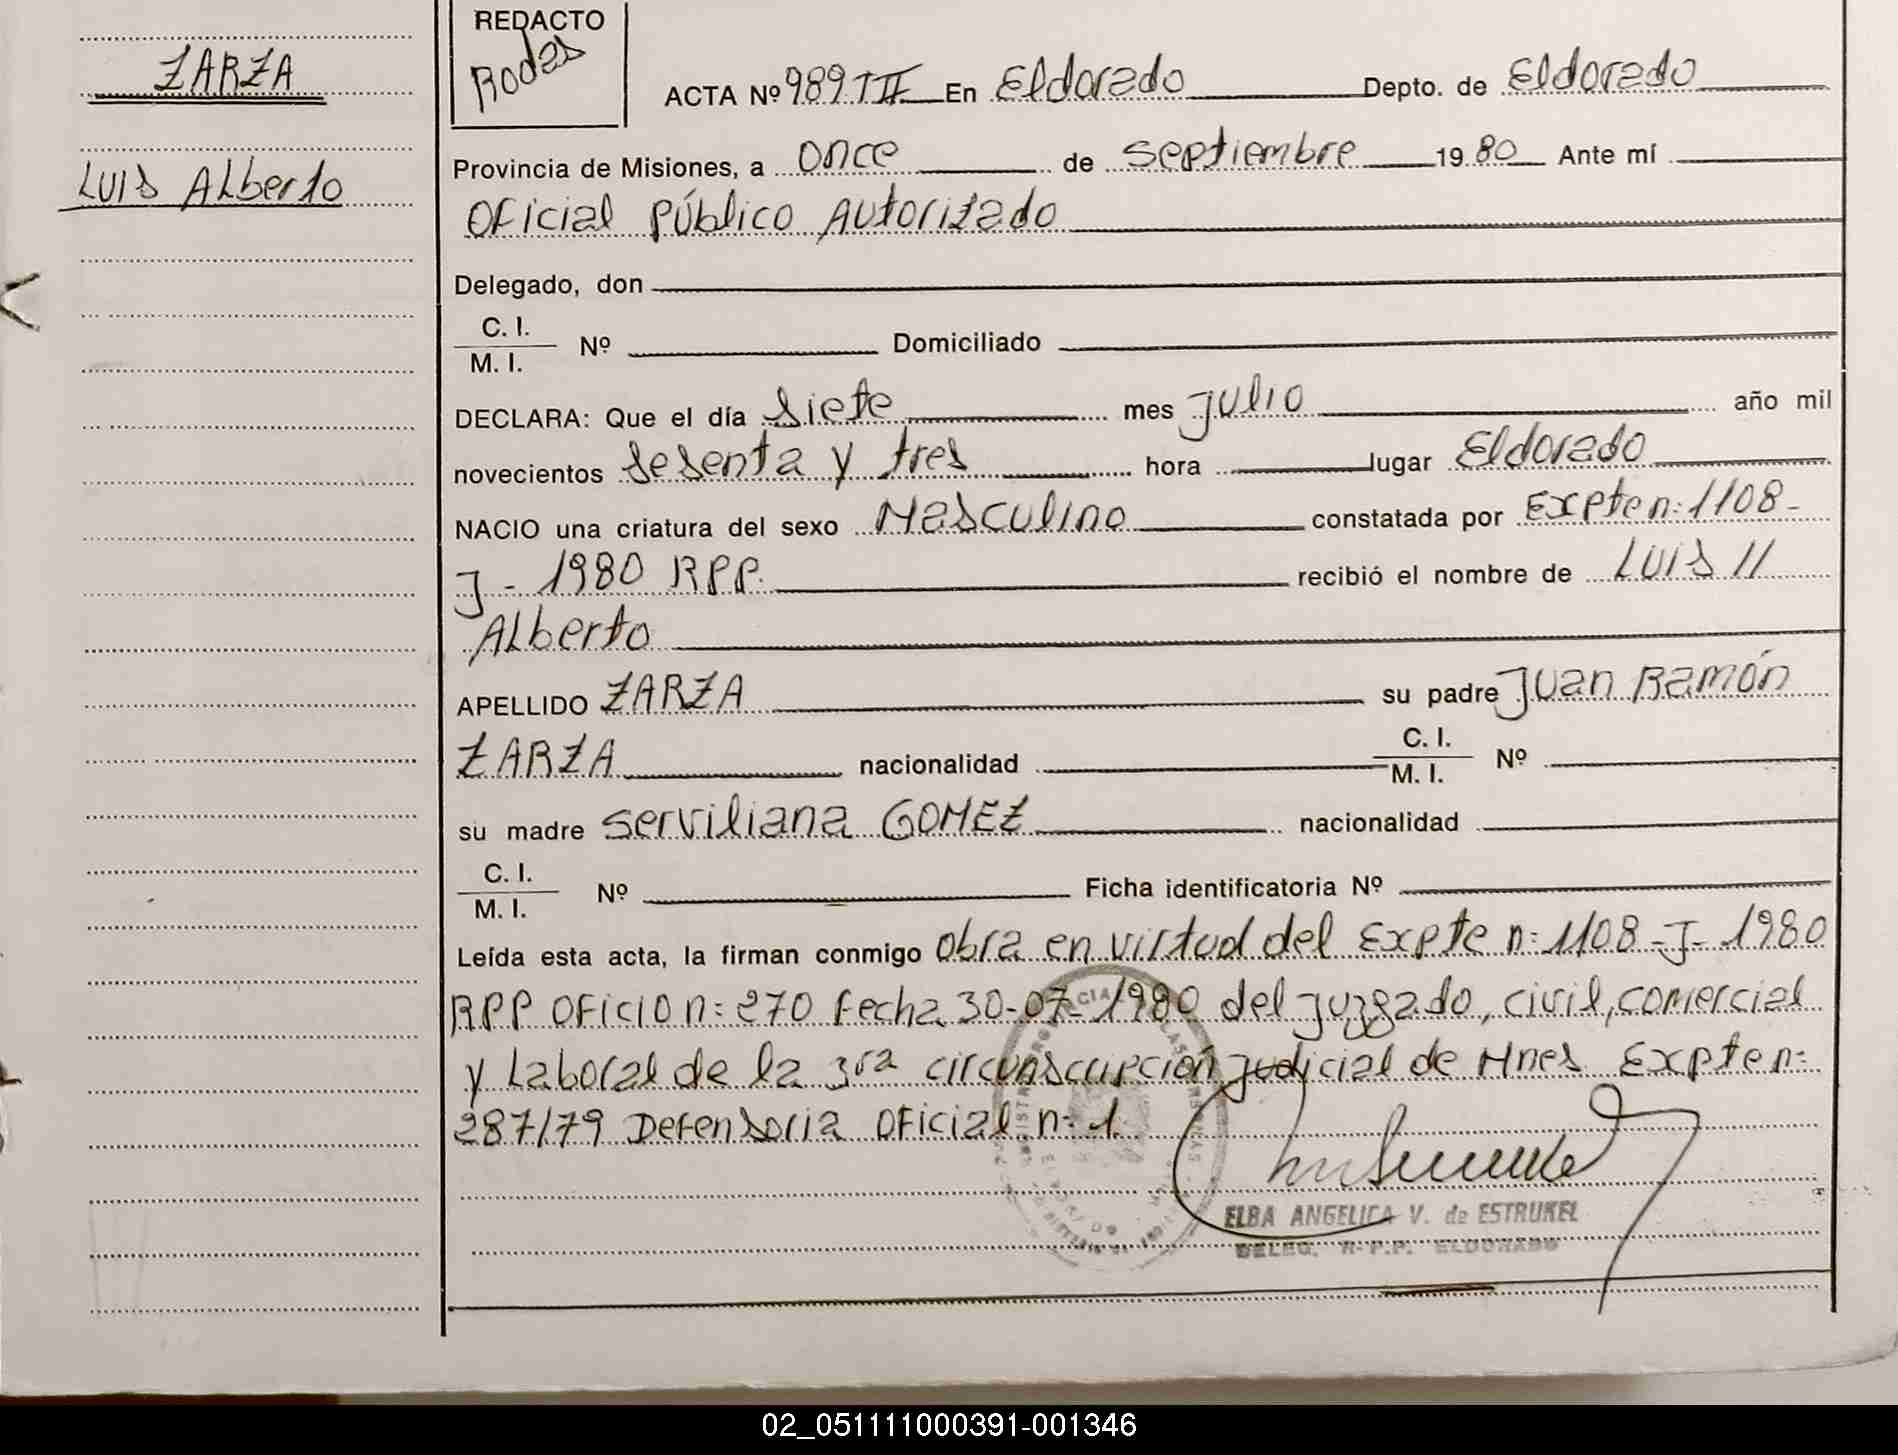 ZARZA
LUIS Alberto
REDACTO
Rodas
ACTA Nº 989 TII En Eldorado Depto. de Eldorado
Provincia de Misiones, a once de septiembre 19 80 Ante mí
Oficial Público Autorizado
Delegado, don
C. I.
M. I. Nº Domiciliado
DECLARA: Que el día siete mes julio año mil
novecientos sesenta y tres hora lugar Eldorado
NACIO una criatura del sexo Masculino constatada por Expte n: 1108-
J - 1980 RPP. recibió el nombre de LUIS //
Alberto
APELLIDO ZARZA su padre Juan Ramón
ZARZA nacionalidad C. I. M. I. Nº
su madre Serviliana GOMEZ nacionalidad
C. I.
M. I. Nº Ficha identificatoria Nº
Leída esta acta, la firman conmigo obra en virtud del Expte n: 1108-J-1980
RPP Oficio n: 270 Fecha 30-07-1980 del juzgado, civil, comercial
y Laboral de la 3ra circunscripción judicial de Mnes Expte n:
287/79 Defensoria Oficial n: 1.
ELBA ANGELICA V. de ESTRUKEL
DELEG. R.P.P. ELDORADO
02_051111000391-001346